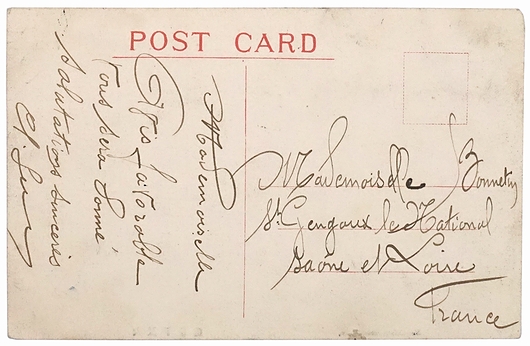 POST CARD
Mademoiselle
Avis favorable
vous sera donné
Salutations sincères
Mademoiselle Bonnetin
St Gengoux le National
Saône et Loire
France